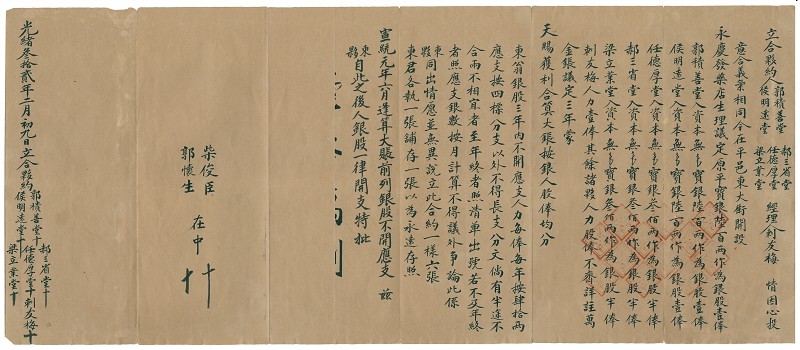 立合夥約人郭積善堂 侯明遠堂 郝三省堂 任德厚堂 梁立業堂 經理刺友梅 情因心投
意合義業相同今在平邑東大街開設
永慶發藥店生理議定原平寶銀陸百兩作為銀股壹俸
郭積善堂入資本無息寶銀陸百兩作為銀股壹俸
侯明遠堂入資本無息寶銀陸百兩作為銀股壹俸
任德厚堂入資本無息寶銀叁佰兩作為銀股半俸
郝三省堂入資本無息寶銀叁佰兩作為銀股半俸
梁立業堂入資本無息寶銀叁佰兩作為銀股半俸
刺友梅人力壹俸其餘諸夥人力股俸不齊詳註萬
金賬議定三年蒙
天賜獲利合算大賬按銀人股俸均分
東翁銀股三年內不開應支人力每俸每年按肆拾兩
應支按四標分支以外不得長支分文倘有半途不
合兩不相宜者至年終者照清單出號若不及年終
者照應支銀數按月計算不得議外爭論此係
東夥同出情愿並無異說立此合約一樣六張
東君各執一張鋪存一張以為永遠存照
宣統元年六月逢算大賬前列銀股不開應支 茲
東夥自此之後人銀股一律開支特批
柴俊臣
郭懷生 在中 十 十
光緒叁拾貳年二月初九日立合夥約 郭積善堂十 侯明遠堂十 郝三省堂十 任德厚堂十 梁立業堂十 刺友梅十